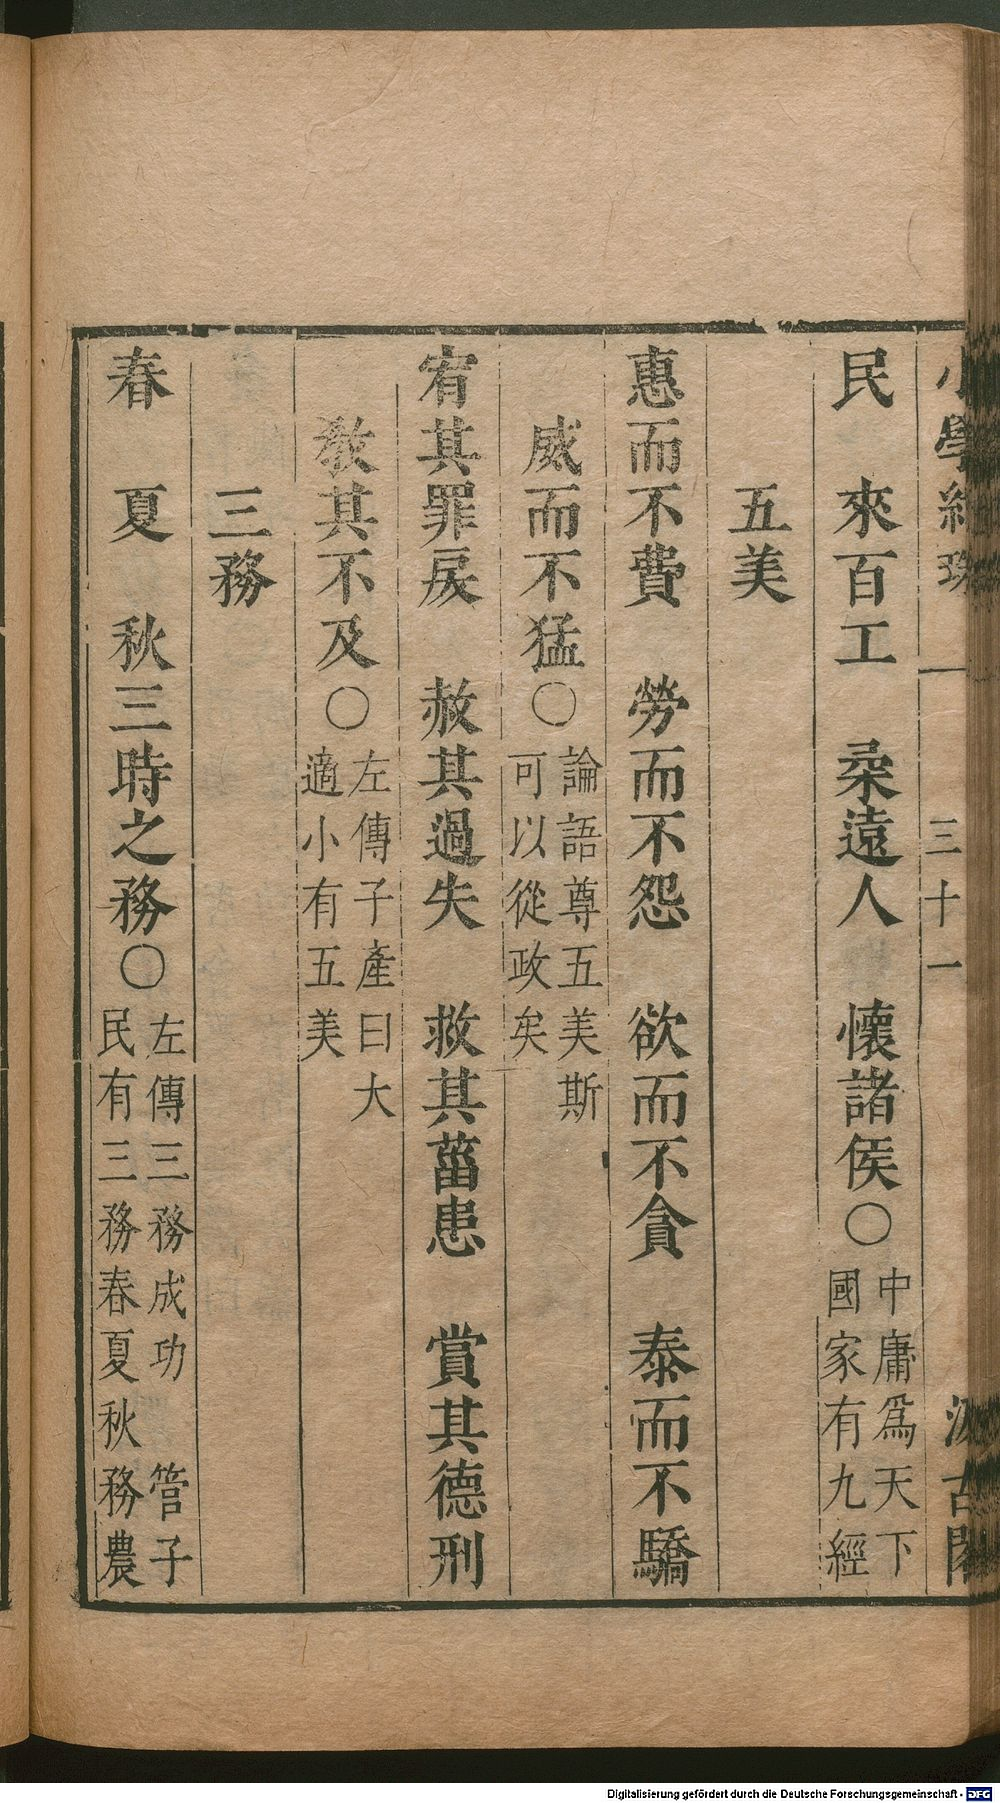 小學紺珠 三十一 汲古閣
民 來百工 柔遠人 懷諸侯○中庸爲天下
國家有九經
五美
惠而不費 勞而不怨 欲而不貪 泰而不驕
威而不猛○論語尊五美斯
可以從政矣
宥其罪戾 赦其過失 救其菑患 賞其德刑
敎其不及○左傳子產曰大
適小有五美
三務
春 夏 秋三時之務○左傳三務成功 管子
民有三務春夏秋務農
Digitalisierung gefördert durch die Deutsche Forschungsgemeinschaft - DFG